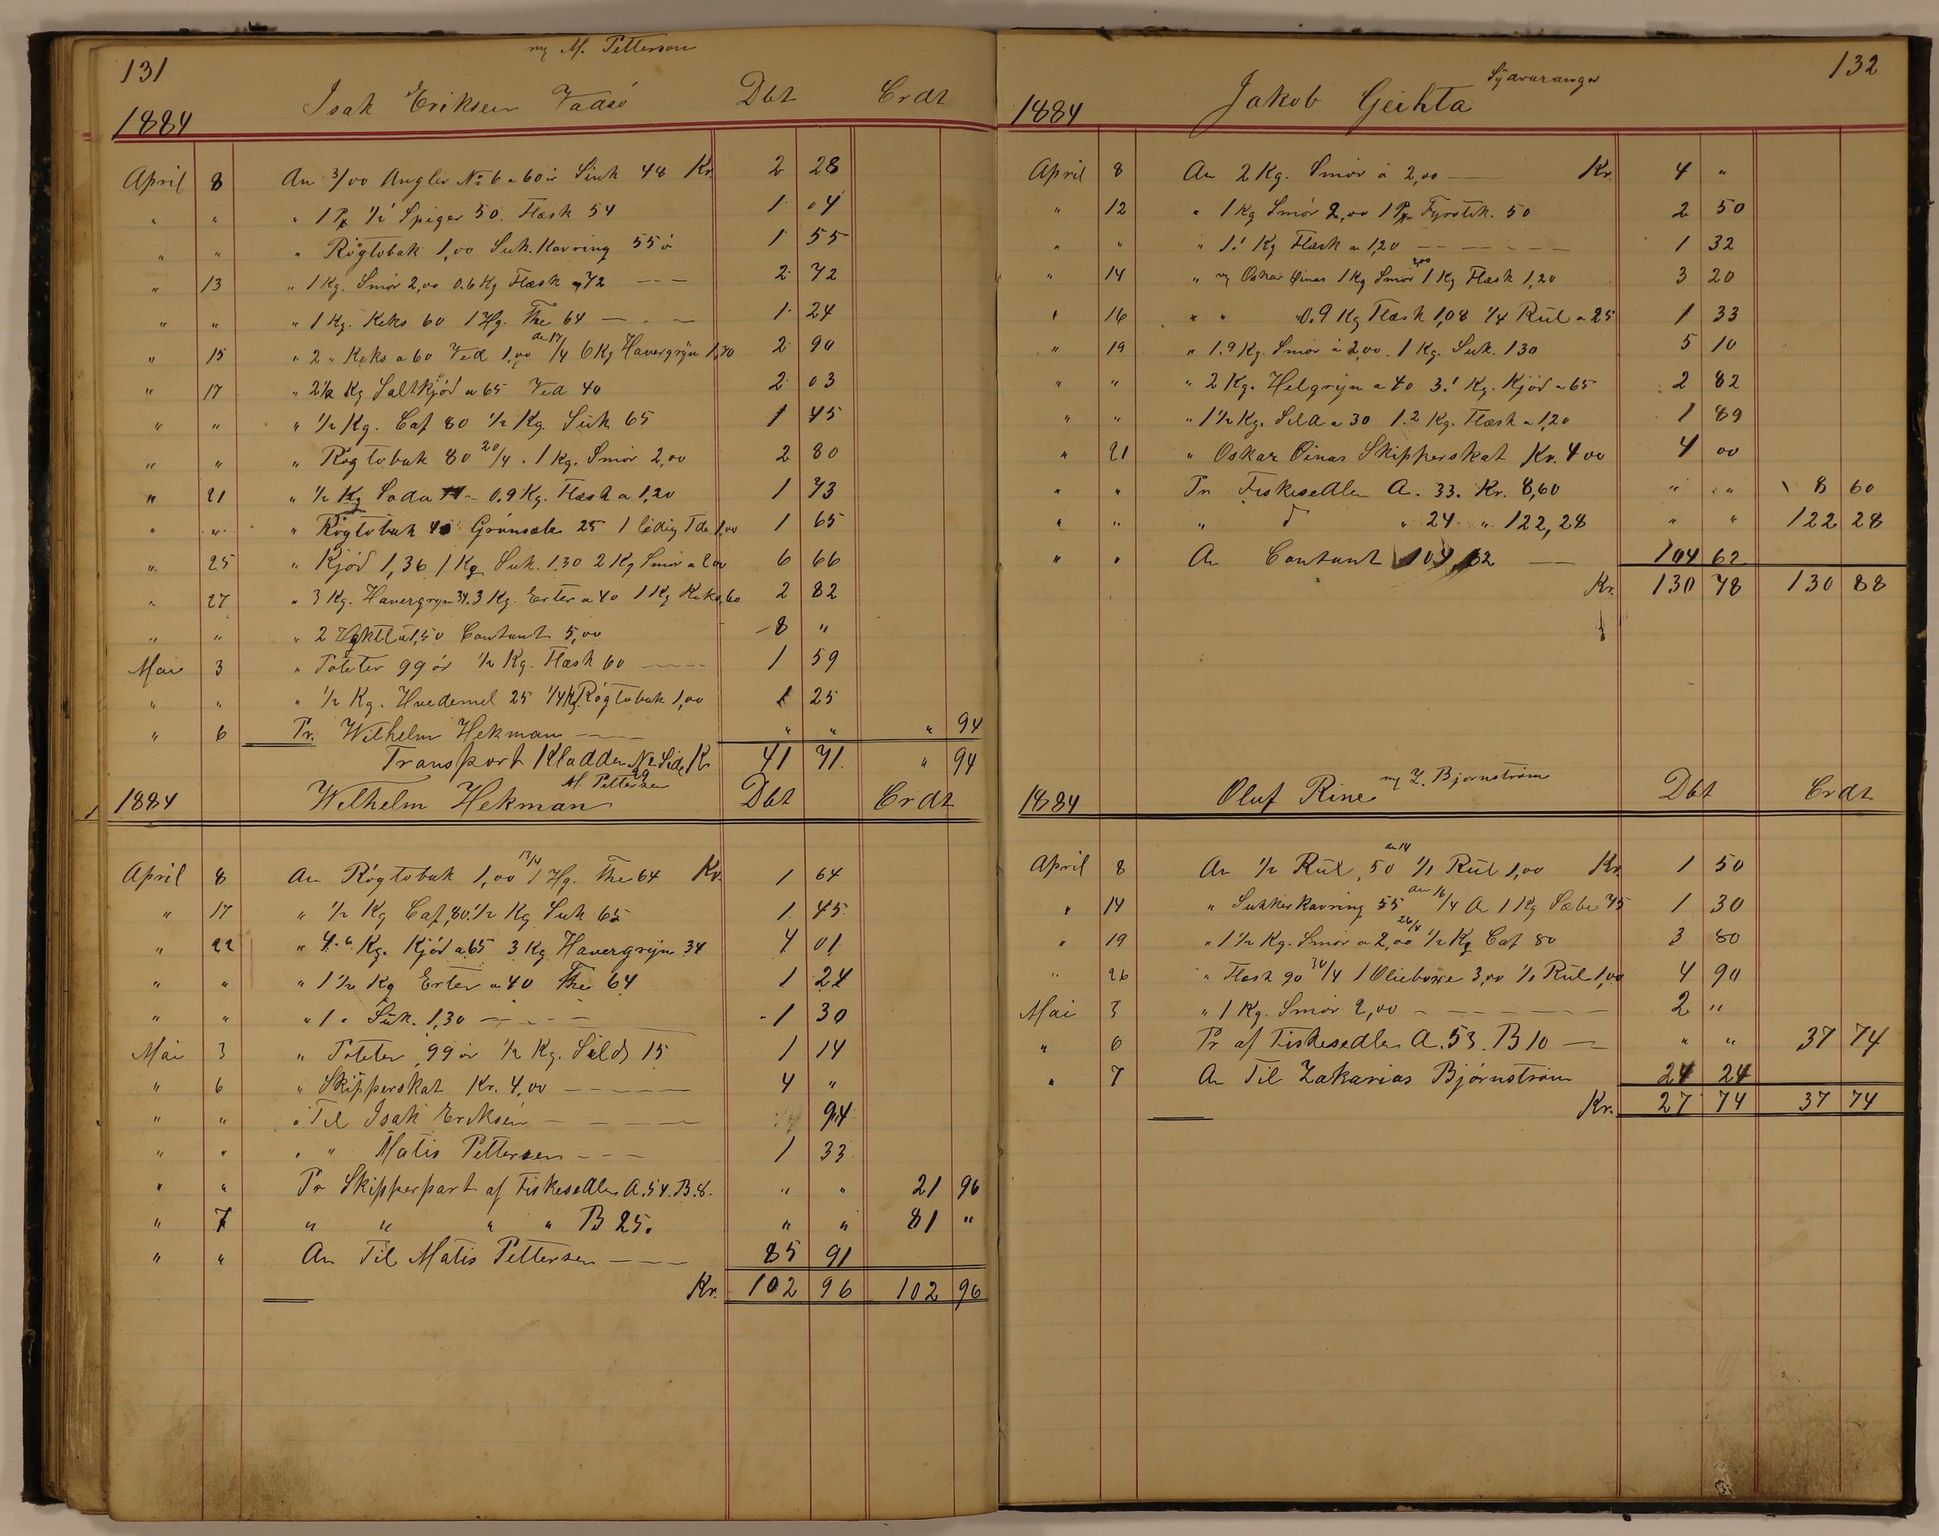 131
mj M. Pettersen
1884 Isak Eriksen Vadsö Dbt Crdt
April 8 An 3/00 Angler No 6 a 60 ör Suk 48 Kr. 2 28
" " " 1 Pk 1/1 Spiger 50. Flæsk 54 1 04
" " " Rögtobak 1,00 Suk. Kavring 55 ö 1 55
" 13 " 1 Kg. Smör 2,00 0.6 Kg Flæsk a 72 2 72
" " " 1 Kg. Keks 60 1 Hg. The 64 1 24
" 15 " 2 " Keks a 60 Ved 1,00 6 Kg Havergryn 1,70 2 90
" 17 " 2 1/2 Kg Saltkjöd a 65 Ved 40 2 03
" " " 1/2 Kg. Caf 80 1/2 Kg. Suk 65 1 45
" " " Rögtobak 80 20/4 . 1 Kg. Smör 2,00 2 80
" 21 " 1/2 Kg Soda 0.9 Kg. Flæsk a 1,20 1 73
" " " Rögtobak 40 Grönsæbe 25 1 ledig Tde 1,00 1 65
" 25 " Kjöd 1,36 1 Kg Suk. 1.30 2 Kg Smör a 2,00 6 66
" 27 " 3 Kg. Havergryn 34. 3 Kg. Erter a 40 1 Kg Keks,60 2 82
" " " 2 a 1,50 Contant 5,00 8 "
Mai 3 " Poteter 99 ör 1/2 Kg. Flæsk 60 1 59
" " " 1/2 Kg. Hvedemel 25 1/4 Kg Rögtobak 1,00 1 25
" 6 Pr. Wilhelm Hekman " " " 94
Transport Kladden No 2 Side 29 Kr 41 71. " 94
1884 Wilhelm Hekman M. Pettersen Dbt Crdt
April 8 An Rögtobak 1,00 17/4 1 Hg. The 64 Kr. 1 64
" 17 " 1/2 Kg Caf,80. 1/2 Kg Suk 65 1 45
" 22 " 4.6 Kg. Kjöd a 65 3 Kg Havergryn 34 4 01
" " " 1 1/2 Kg Erter a 40 The 64 1 24
" " " 1 " Suk. 1,30 1 30
Mai 3 " Poteter 99 ör 1/2 Kg. Sild 15 1 14
" 6 " Skipperskat Kr. 4,00 4 "
" " " Til Isak Eriksen 94
" " " " Matis Pettersen 1 33
" " Pr Skipperpart af Fiskesedler A.54. B.8. " " 21 96
" 7 " " " " B 25. " " 81 "
" " An Til Matis Pettersen 85 91
Kr. 102 96 102 96
132
1884 Jakob Geihta Sydvaranger
April 8 An 2 Kg. Smör à 2,00 Kr. 4 "
" 12 " 1 Kg Smör 2,00 1 Pk Fyrstik. 50 2 50
" " " 1.1 Kg Flæsk a 1,20 1 32
" 14 " mj Oskar Öinas 1 Kg Smör 2,00 1 Kg Flæsk 1,20 3 20
" 16 " " 0.9 Kg Flæsk 1,08 1/4 Rul a 25 1 33
" 19 " 1.9 Kg. Smör à 2,00. 1 Kg. Suk. 130 5 10
" " " 2 Kg. Helgryn a 40 3.1 Kg. Kjöd a 65 2 82
" " " 1 1/2 Kg. Sild a 30 1.2 Kg. Flæsk a 1,20 1 89
" 21 " Oskar Öinas Skipperskat Kr. 4 00 4 00
" " Pr Fiskesedler A. 33. Kr. 8,60 " " 8 60
" " " d " 24 " 122,28 " " 122 28
" " An Contant 104,62 104 62
Kr. 130 78 130 88
1884 Oluf Rine mj Z. Bjornström Dbt Crdt
April 8 An 1/2 Rul ,50 an 14 1/1 Rul 1,00 Kr. 1 50
" 14 " Sukkerkavring 55 an 16/4 An 1 Kg Sæbe 75 1 30
" 19 " 1 1/2 Kg. Smör a 2,00 26/4 1/2 Kg Caf 80 3 80
" 26 " Flæsk 90 30/4 1 Oliebuxe 3,00 1/1 Rul 1,00 4 90
Mai 3 " 1 Kg. Smör 2,00 2 "
" 6 Pr af Fiskesedler A. 53. B 10 " " 37 74
" 7 An Til Zakarias Bjørnström 24 24
Kr. 27 74 37 74